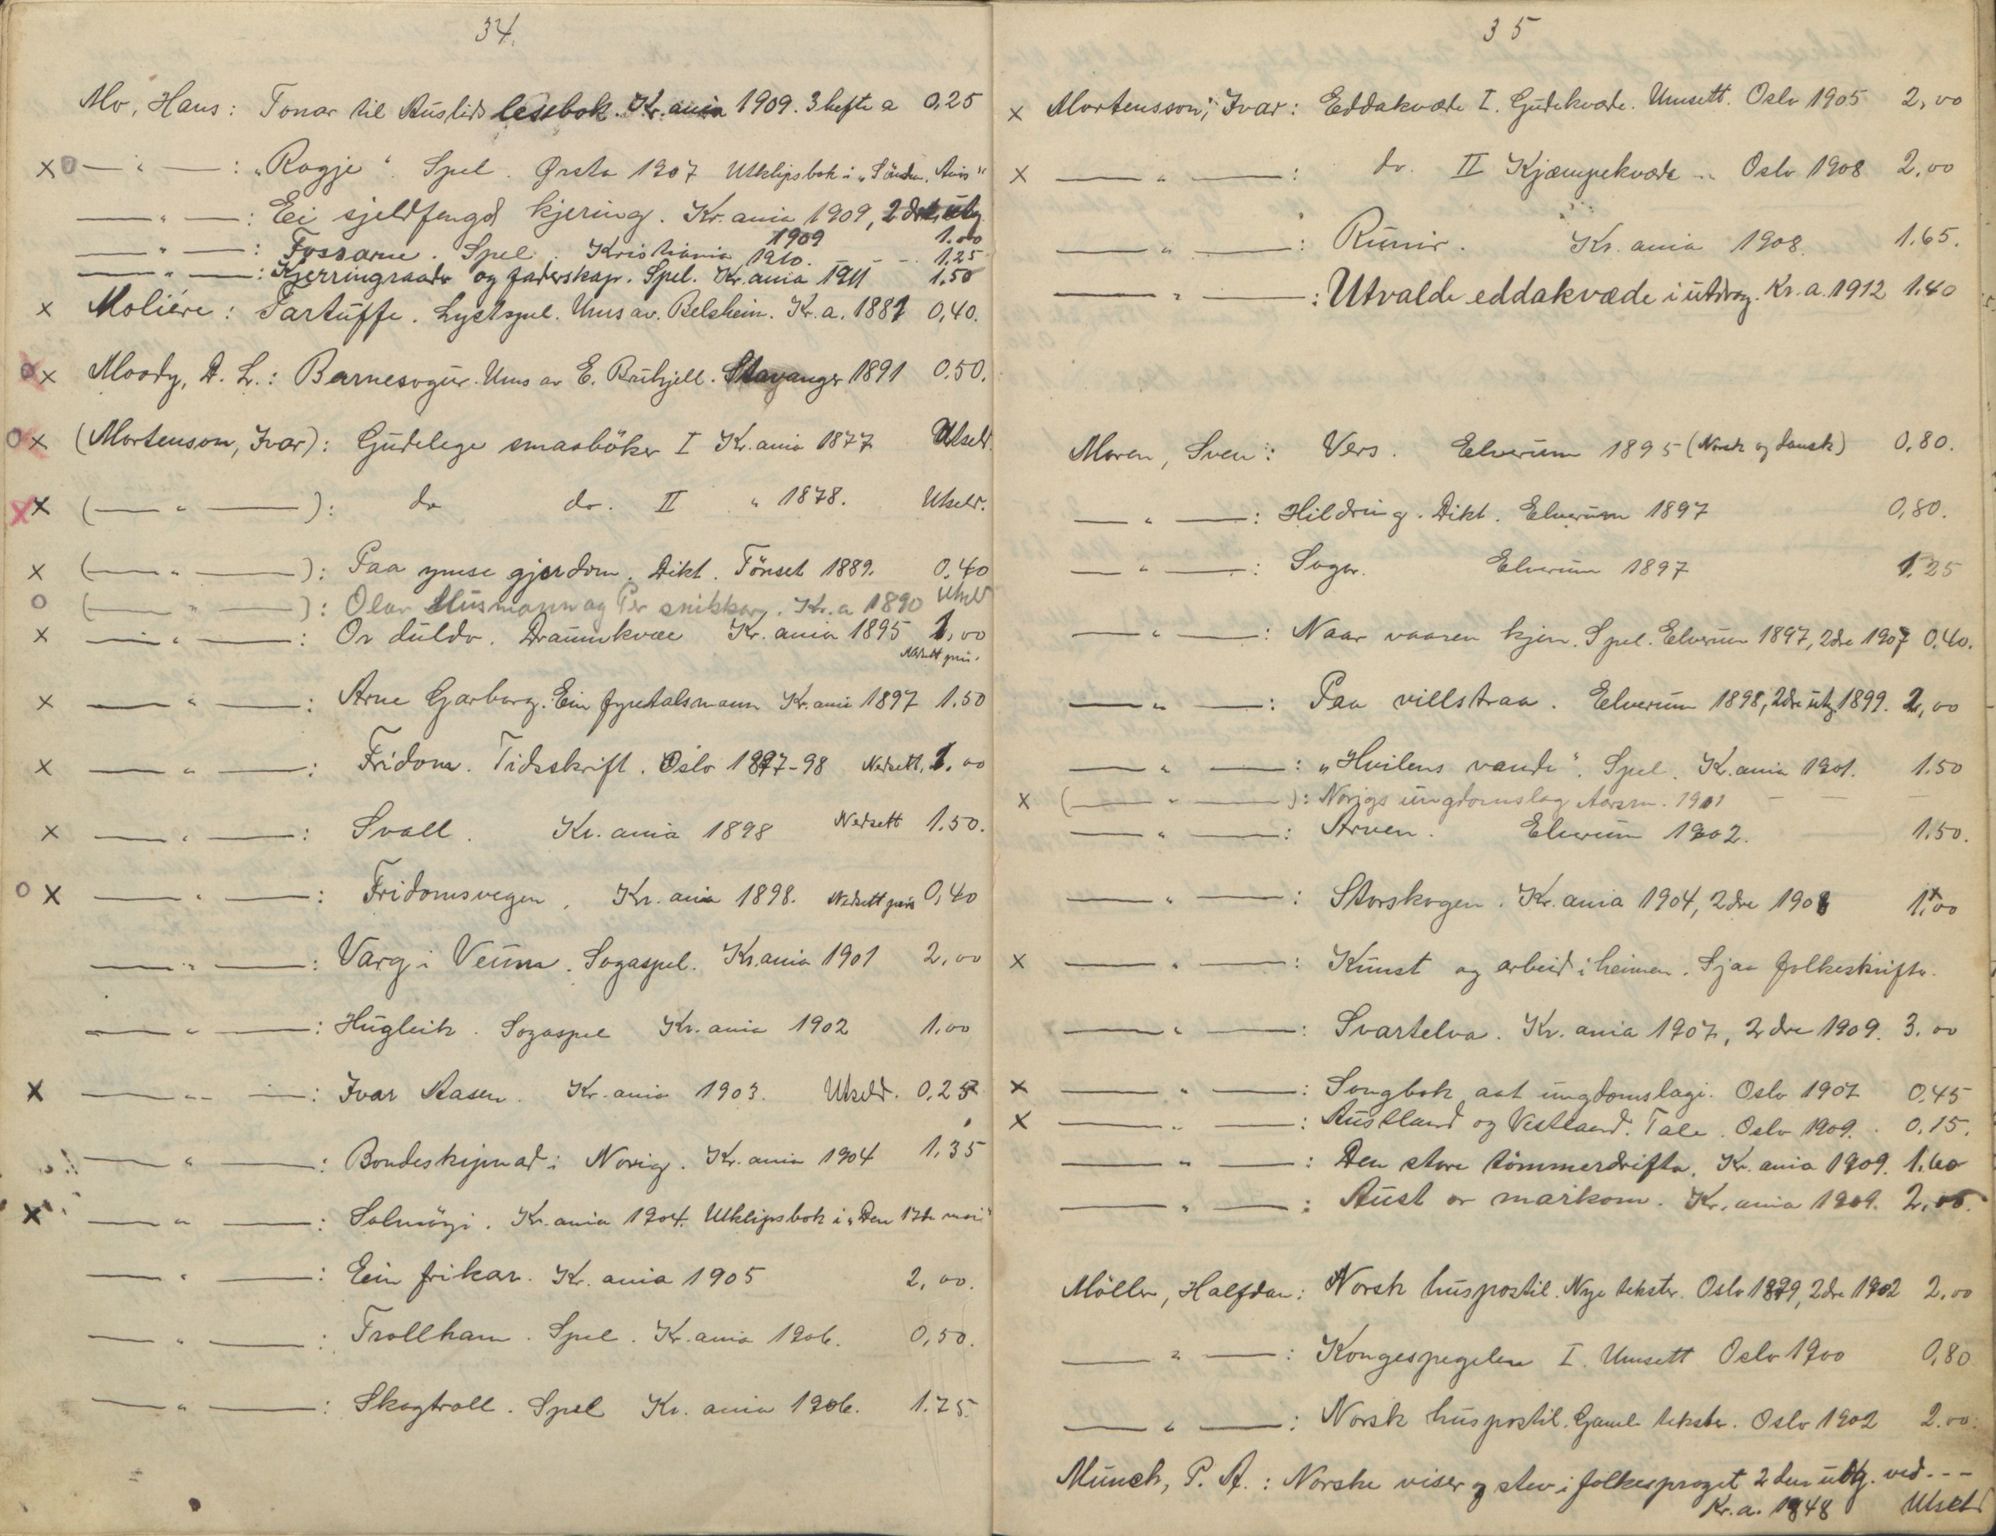 34.
Mo, Hans: Tonar til Auslids lesebok. Kr.ania 1909. 3 hefte a 0,25
x o — " — : „Ragje“ Spel. Ørsta 1907 Utklipsbok i „Söndm. Avis“
— " — : Ei sjeldfengd kjering. Kr.ania 1909, 2dre utg
1909 1.00
— " — : Fossarne. Spel. Kristiania 1910. - - - 1.25
— " — : Kjerringraado og faderskap. Spel. Kr.ania 1911 1.50
x Moliére: Tartuffe. Lystspel. Ums av. Belsheim. Kr.a. 1881 0,40.
o x Moody, D. L.: Barnesogur. Ums av E. Bruhjell. Stavanger 1891 0.50.
o x (Mortenson, Ivar): Gudelege smaabøker I Kr.ania 1877 Utseld.
x x (— " —): do do. II " 1878. Utseld.
x (— " —): Paa ymse gjerdom. Dikt. Tönset 1889. 0,40
o (— " —): Olav Husmann og Per snikkar. Kr.a 1890 Utseld
x — " — : Or duldo. Draumkvæe Kr.ania 1895 1,00
Nedsett pris.
x — " — : Arne Garborg. Ein fyretalsmann Kr.ania 1897 1.50
x — " — : Fridom. Tidsskrift. Oslo 1897-98 Nedsett. 1.00
x — " — : Svoll. Kr.ania 1898 Nedsett 1.50.
o x — " — : Fridomsvegen. Kr.ania 1898. Nedsett pris 0,40
— " — : Varg i Veum. Sogaspel. Kr.ania 1901 2,00
— " — : Hugleik. Sogaspel Kr.ania 1902 1.00
x — " — : Ivar Aasen. Kr.ania 1903. Utseld. 0,25
— " — : Bondeskipnad i Norig. Kr.ania 1904 1,35
x — " — : Solmöyi. Kr.ania 1904. Utklipsbok i „Den 17de mai“
— " — : Ein frikar. Kr.ania 1905 2,00.
— " — : Trollham. Spel. Kr.ania 1906. 0,50.
— " — : Skogtroll. Spel Kr.ania 1906. 1.75.
35
x Mortensson, Ivar: Eddakvæde I. Gudekvæde. Umsett. Oslo 1905 2,00
x — " — : do. II Kjæmpekvæde " Oslo 1908 2,00
— " — : Runir. Kr.ania 1908. 1.65.
— " — : Utvalde eddakvæde i utdrag. Kr.a. 1912 1.40
Moren, Sven: Vers. Elverum 1895 (Norsk og dansk) 0,80.
— " — : Hildring. Dikt. Elverum 1897 0,80.
— " — : Sogor. Elverum 1897 1.25
— " — : Naar vaaren kjem. Spel. Elverum 1897, 2dre 1907 0,40.
— " — : Paa villstraa. Elverum 1898, 2dre utg 1899. 2,00
— " — : „Hvilens vande“. Spel. Kr.ania 1901. 1.50
x (— " —): Norigs ungdomslag Aarsm. 1901 — — —
— " — : Arven. Elverum 1902. 1.50.
— " — : Storskogen. Kr.ania 1904, 2dre 1908 1.00
x — " — : Kunst og arbeid i heimen. Sjaa folkeskrifte.
— " — : Svartelva. Kr.ania 1907, 2dre 1909. 3.00
x — " — : Songbok aat ungdomslagi. Oslo 1907 0,45
x — " — : Austland og Vestland. Tale. Oslo 1909. 0.15.
— " — : Den store tömmerdrifta. Kr.ania 1909. 1.60
— " — : Aust or markom. Kr.ania 1909. 2,00.
Möller, Halfdan: Norsk huspostil. Nye tekster. Oslo 1899, 2dre 1902 2,00
— " — : Kongespegelen I. Umsett Oslo 1900 0,80
— " — : Norsk huspostil. Gamle tekster. Oslo 1902 2.00.
Munch, P. A.: Norske viser og stev i folkesproget 2den utg. ved - - -
Kr.a. 1848 Utseld